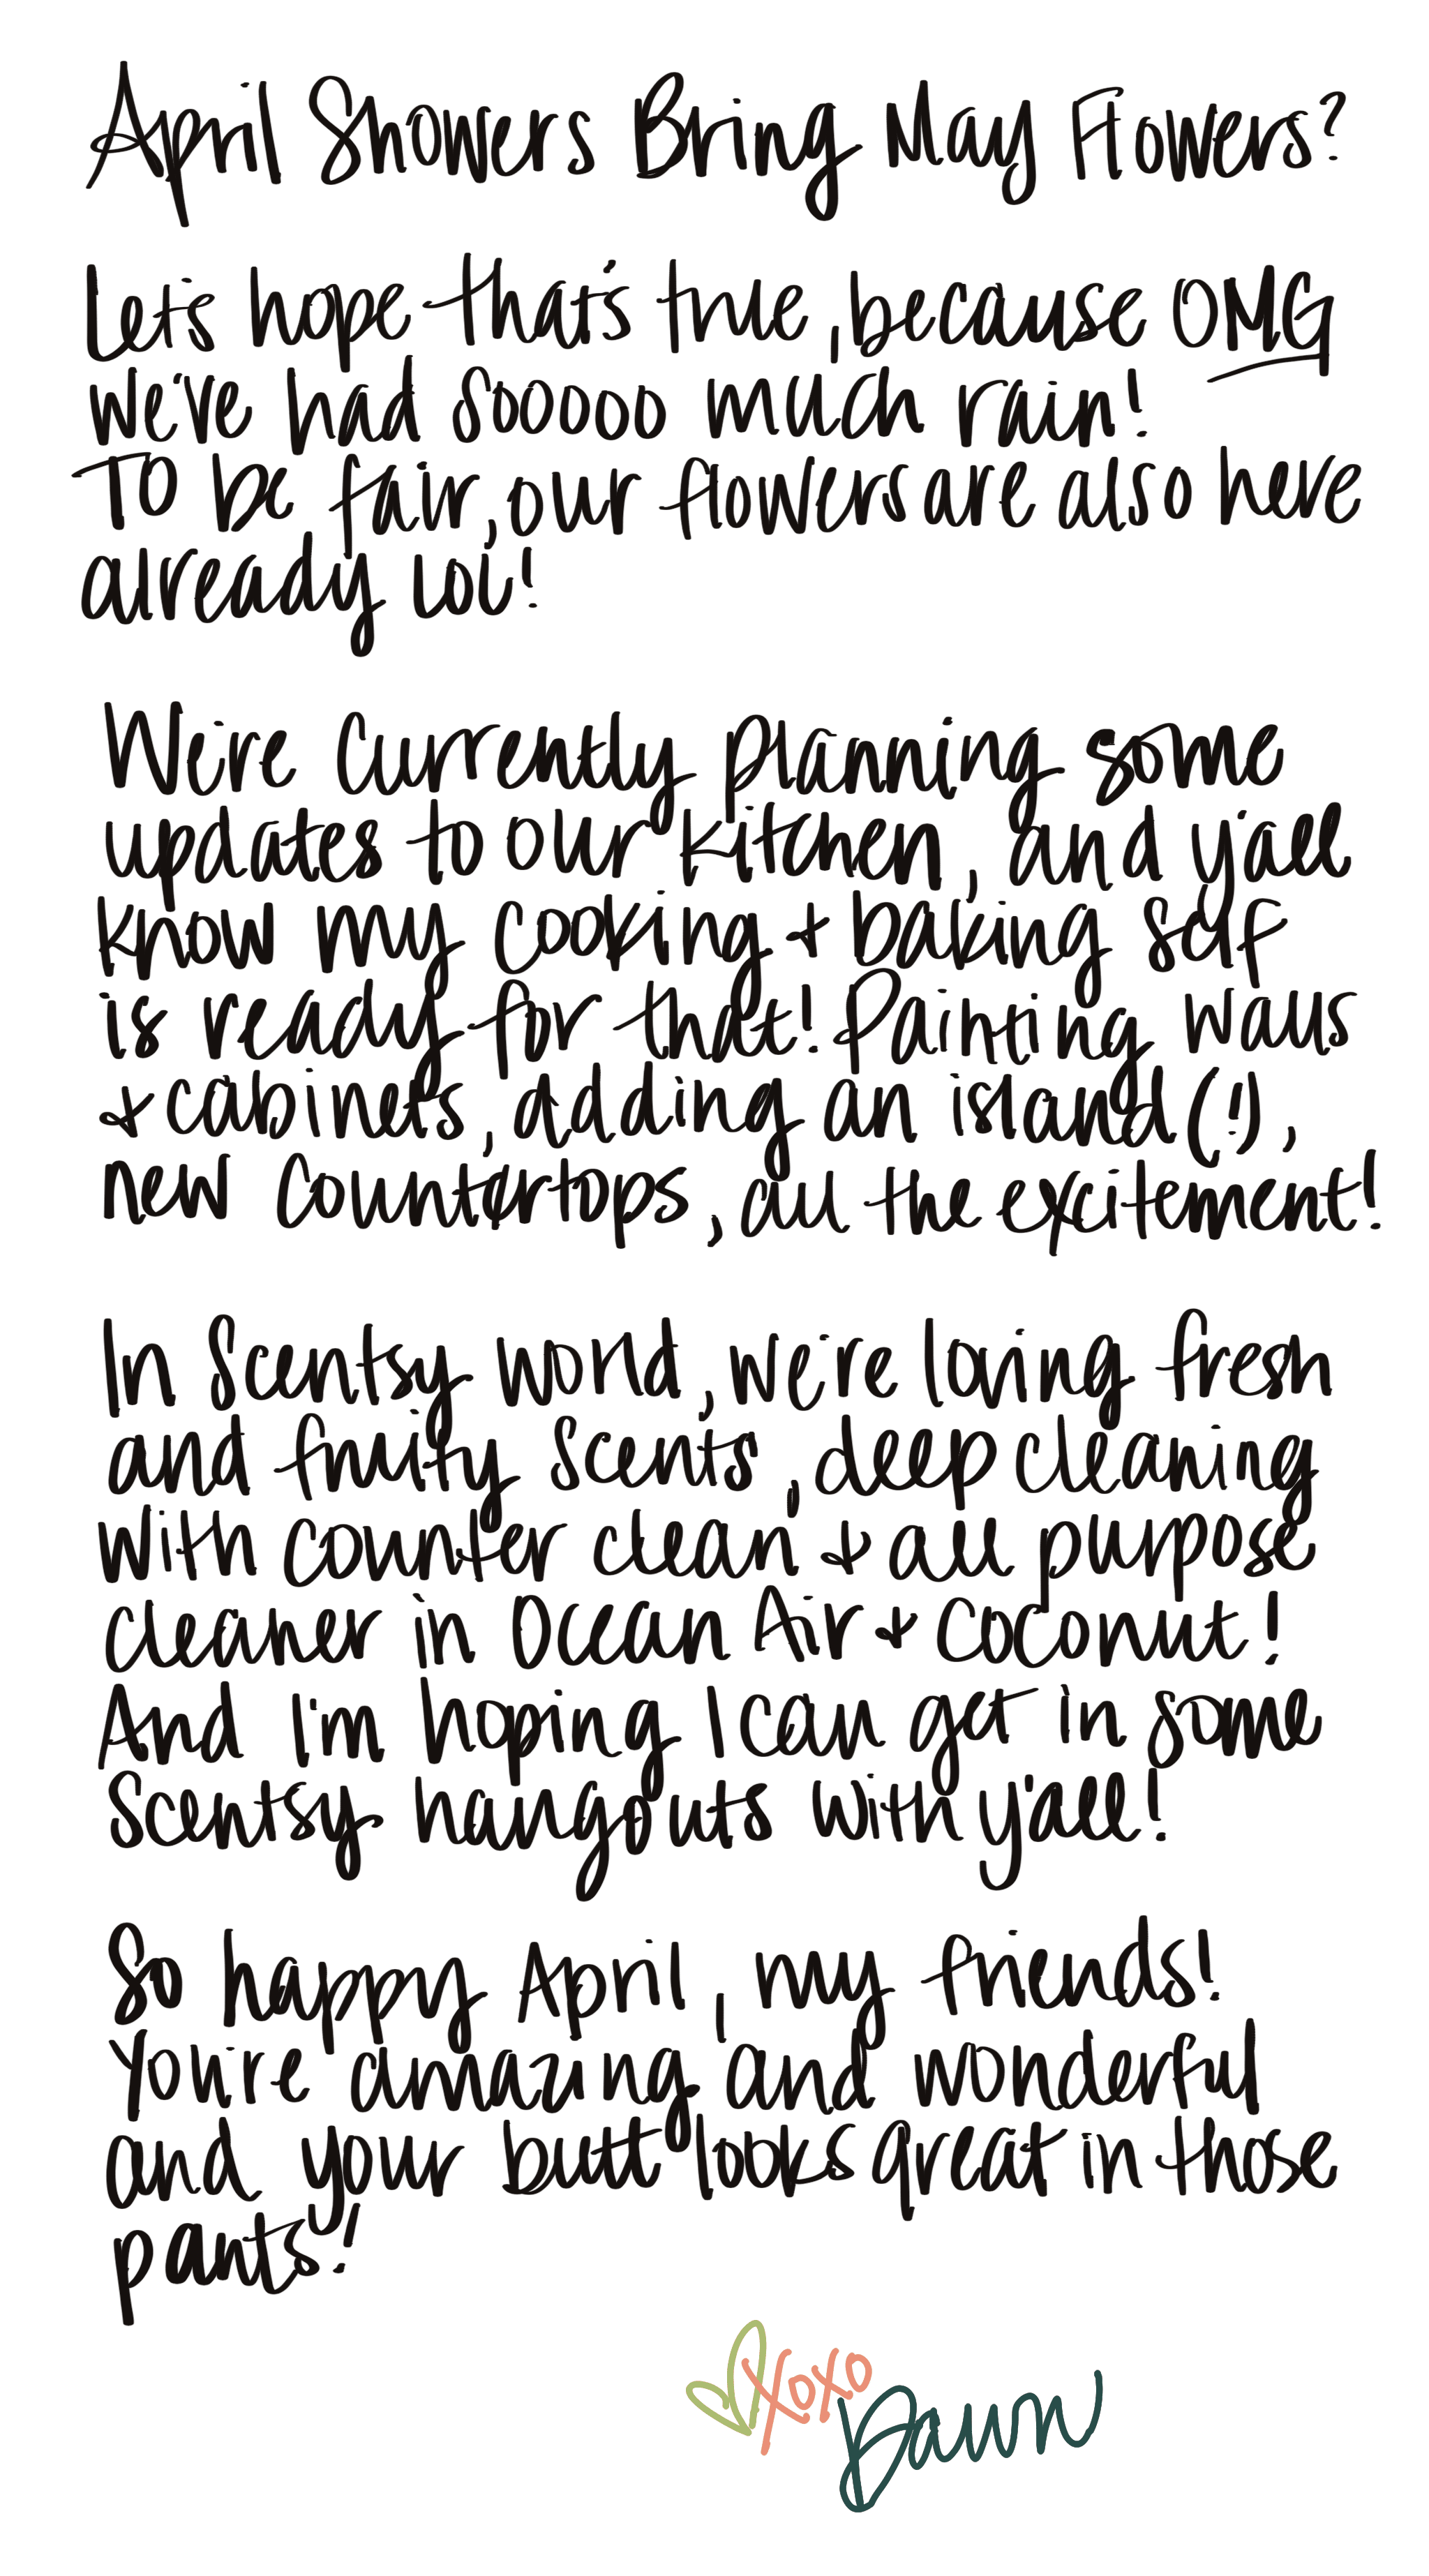 April Showers Bring May Flowers?
Let's hope that's true, because OMG
we've had sooooo much rain!
To be fair, our flowers are also here
already lol!
We're currently planning some
updates to our kitchen, and y'all
know my cooking + baking self
is ready for that! Painting walls
+ cabinets, adding an island (!),
new countertops, all the excitement!
In Scentsy world, we're loving fresh
and fruity scents, deep cleaning
with counter clean + all purpose
cleaner in Ocean Air + Coconut!
And I'm hoping I can get in some
Scentsy hangouts with y'all!
So happy April, my friends!
You're amazing and wonderful
and your butt looks great in those
pants!
xoxo
Dawn